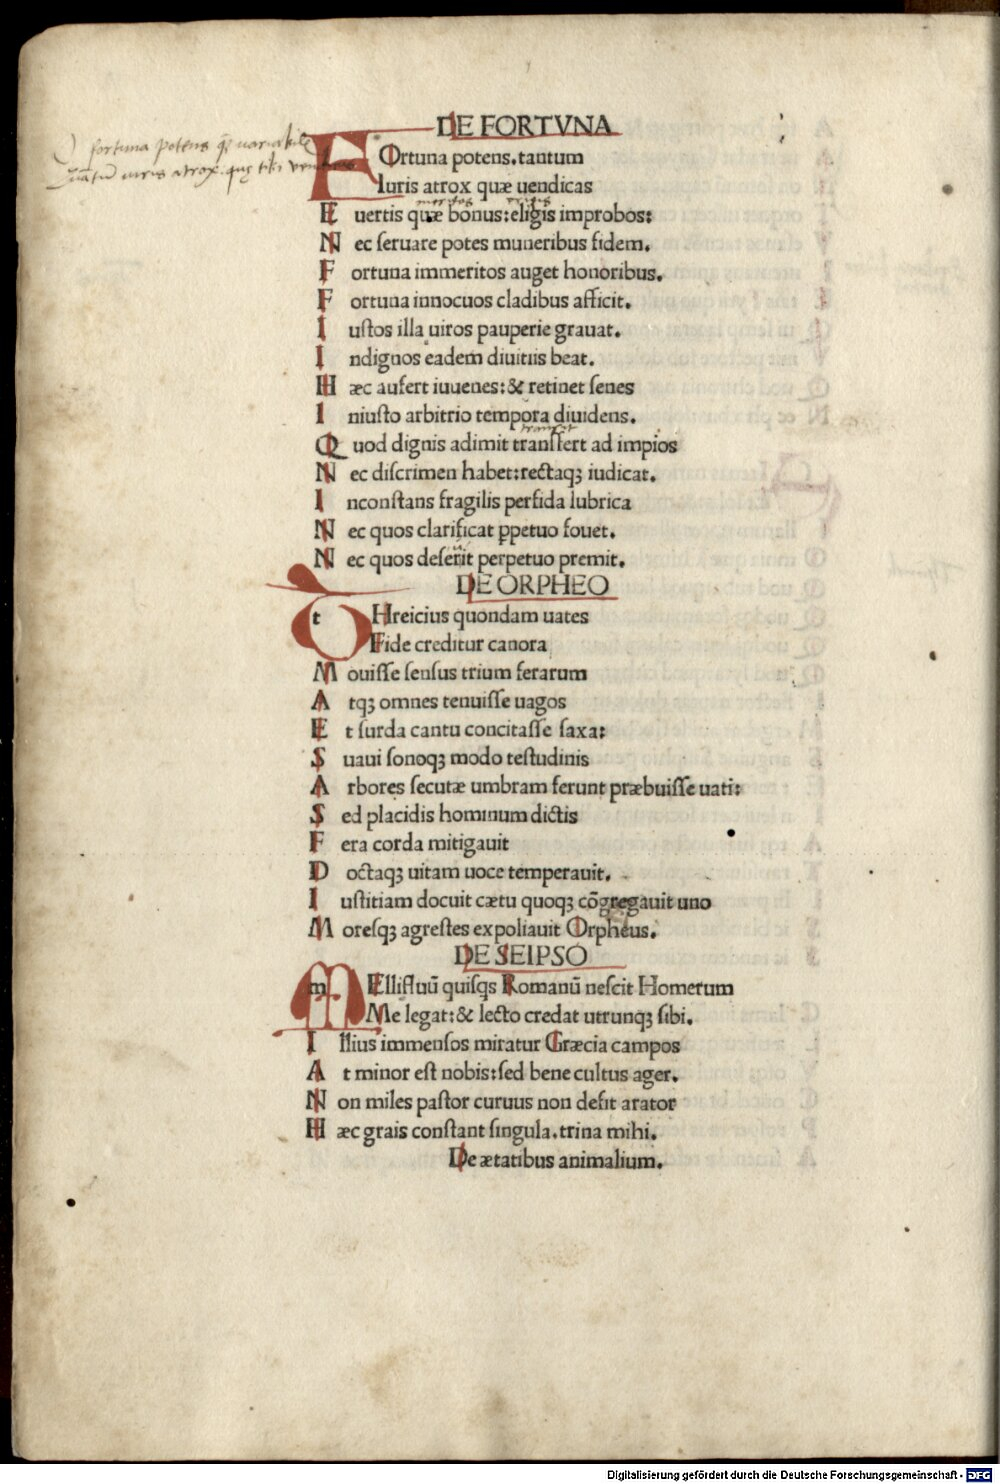 DE FORTVNA
O fortuna potens q̃ variabilis
tantũ iuris atrox. quę tibi vendicas
FOrtuna potens.tantum
Iuris atrox quæ uendicas
E uertis quæ bonus:eligis improbos:
N ec ſeruare potes muneribus fidem.
F ortuna immeritos auget honoribus.
F ortuna innocuos cladibus afficit.
I uſtos illa uiros pauperie grauat.
I ndignos eadem diuitiis beat.
H æc aufert iuuenes:& retinet ſenes
I niuſto arbitrio tempora diuidens.
Q uod dignis adimit tranſfert ad impios
N ec diſcrimen habet:rectaqꝫ iudicat.
I nconſtans fragilis perfida lubrica
N ec quos clarificat ꝑpetuo fouet.
N ec quos deſerit perpetuo premit.
DE ORPHEO
tHreicius quondam uates
Fide creditur canora
M ouiſſe ſenſus trium ferarum
A tqꝫ omnes tenuiſſe uagos
E t ſurda cantu concitaſſe ſaxa:
S uaui ſonoqꝫ modo teſtudinis
A rbores ſecutæ umbram ferunt præbuiſſe uati:
S ed placidis hominum dictis
F era corda mitigauit
D octaqꝫ uitam uoce temperauit.
I uſtitiam docuit cætu quoqꝫ cõgregauit uno
M oreſqꝫ agreſtes expoliauit Orpheus.
DE SEIPSO
mEllifluũ quiſqs Romanũ neſcit Homerum
Me legat:& lecto credat utrunqꝫ ſibi.
I llius immenſos miratur Græcia campos
A t minor eſt nobis:ſed bene cultus ager.
N on miles paſtor curuus non defit arator
H æc grais conſtant ſingula.trina mihi.
De ætatibus animalium.
Digitalisierung gefördert durch die Deutsche Forschungsgemeinschaft - DFG